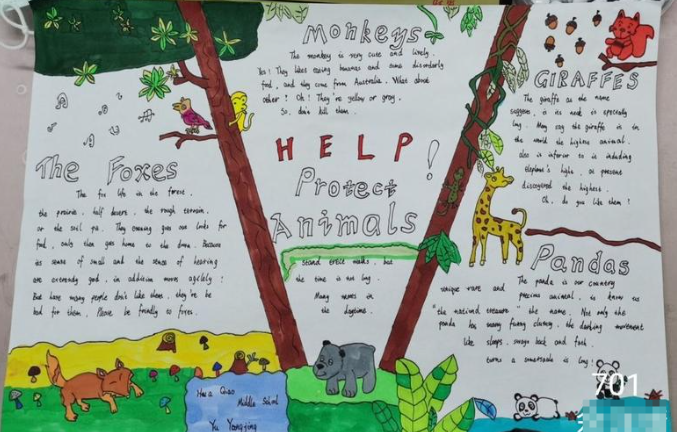 Monkeys
The monkey is very cute and lively.
Yes! They likes eating bananas and some disorderly
food, and they come from Australia. What about
other? Oh! They're yellow or grey.
So, don't kill them.
HELP!
Protect
Animals
stand erect walks, but
the time is not long.
Many moves in
the daytime.
The Foxes
The fox life in the forest,
the prairie, half desert, the rough terrain,
or the soil pit. They evening goes out looks for
food, only then goes home to the dawn. Because
its sense of small and the sense of hearing
are extremely good, in addition move agilely!
But have many people don't like them, they're be
bad for them. Please be friendly to foxes.
GIRAFFES
The giraffe as the name
suggests, is its neck is especially
long. May say the giraffe is in
the world the highest animal.
also is inferior to is including
elephant's high, at present
discovered the highest.
Oh, do you like them!
Pandas
The panda is our country
unique rare and precious animal, is known as
"the national treasure" the name. Not only the
panda has many funny clumsy, the
movement
like sleeps, sways back and forth,
turns a somersault is long!
Hua Qiao
Middle School
Yu Yongjing
701